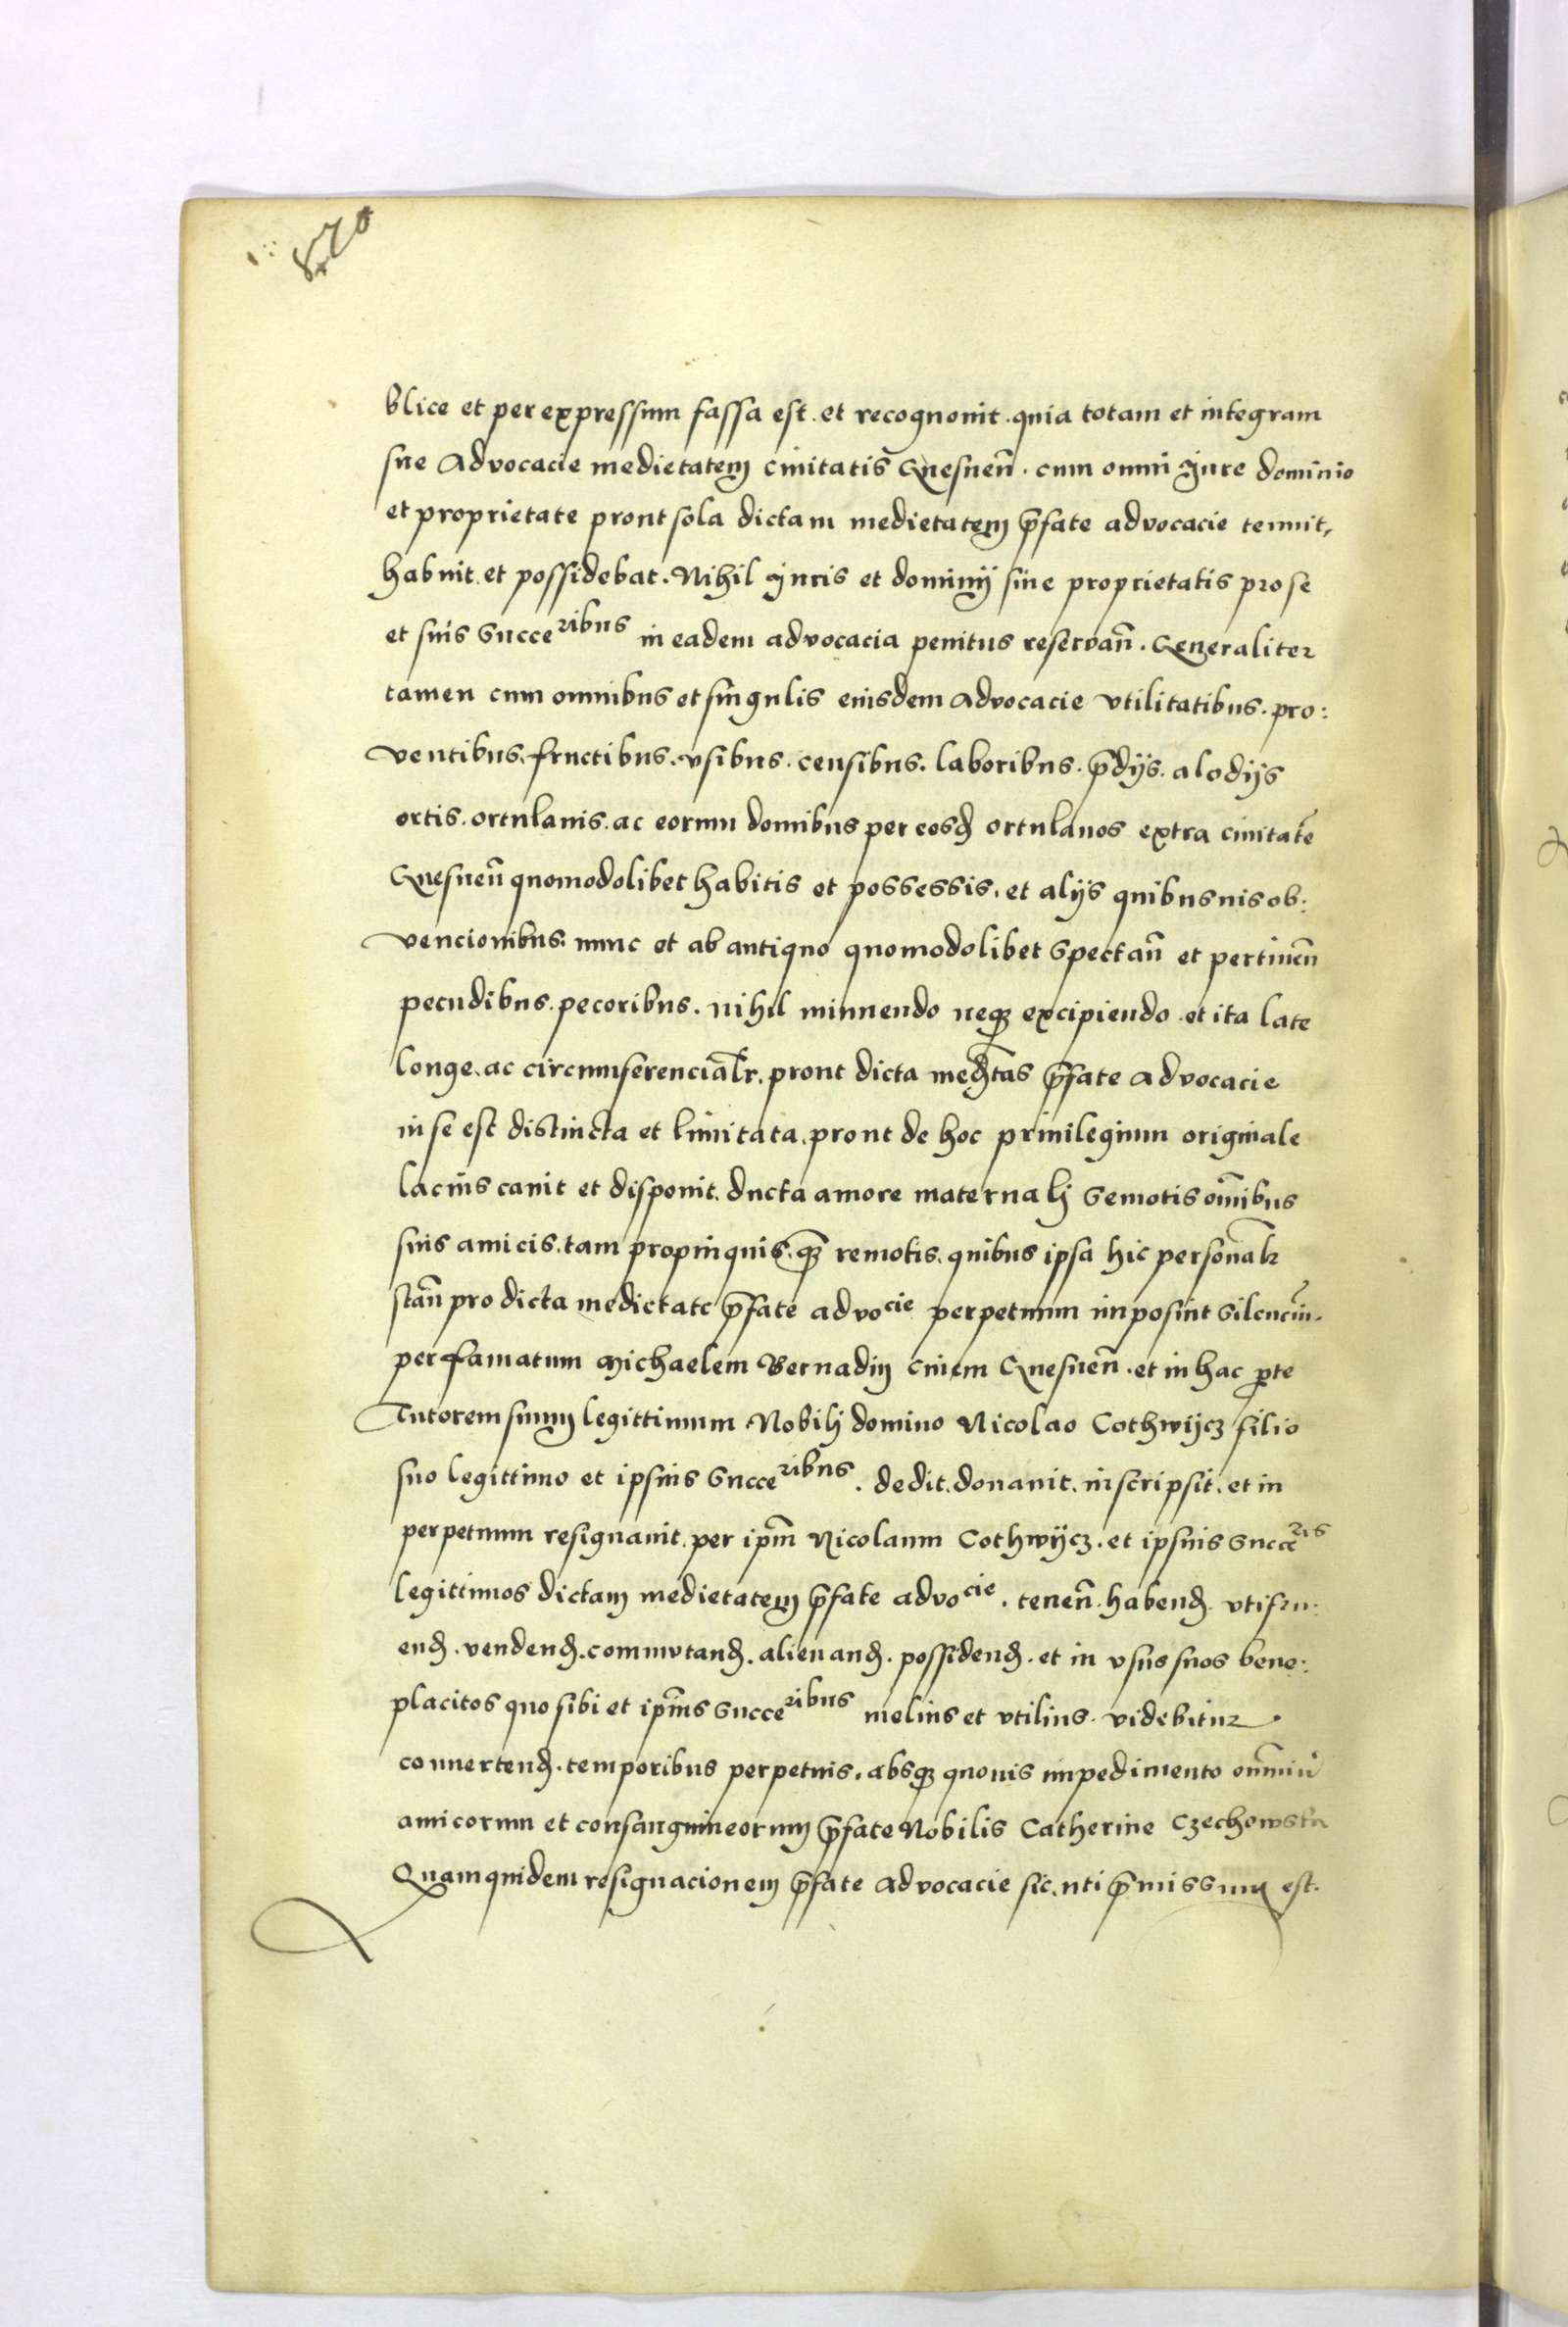 blice et per expressum fassa est. et recognouit. quia totam et integram
sue Advocacie medietatem ciuitatis Gnesneñ. cum omni Jure dominio
et proprietate prout sola dictam medietatem p̄fate advocacie tenuit,
habuit. et possidebat. Nihil Juris et dominij siue proprietatis pro se
et suis Succeribus in eadem advocacia penitus reservañ. Generaliter
tamen cum omnibus et singulis eiusdem Advocacie vtilitatibus. pro:
ventibus. fructibus. vsibus. censibus. laboribus. p̄dijs. alodijs
ortis. ortulanis. ac eorum domibus per eosd ortulanos extra ciuitatē
Gnesneñ quomodolibet habitis et possessis. et alijs quibusuis ob:
vencionibus. nunc et ab antiquo quomodolibet Spectañ et pertineñ
pecudibus. pecoribus. nihil minuendo neqꝫ excipiendo. et ita late
longe. ac circumferencial̄r. prout dicta medtas p̄fate advocacie
in se est distincta et limitata. prout de hoc priuilegium originale
lacius canit et disponit. ducta amore maternalj Semotis om̄ibus
suis amicis. tam propinquis. qꝫ remotis. quibus ipsa hic personal̄r
stañ pro dicta medietate p̄fate advocie perpetuum imposuit Silenciū.
per famatum Michaelem Bernadin ciuem Gnesneñ. et in hac pte
Tutorem suum legittimum Nobilj domino Nicolao Cothwijcz filio
suo legittimo et ipsius Succeribus. dedit. donauit. inscripsit. et in
perpetuum resignauit. per ipm̄ Nicolaum Cothwijcz. et ipsius Succeres
legittimos dictam medietatem p̄fate advocie. teneñ. habend. vtifru:
end. vendend. commutand. alienand. possidend. et in vsus suos bene:
placitos quo sibi et ipīus Succeribus melius et vtilius. videbitur
conuertend. temporibus perpetuis. absqꝫ quouis impedimento om̄niū
amicorum et consanguineorum p̄fate Nobilis Catherine Czechowska
Quamquidem resignacionem p̄fate Advocacie sic. uti p̄missum est.